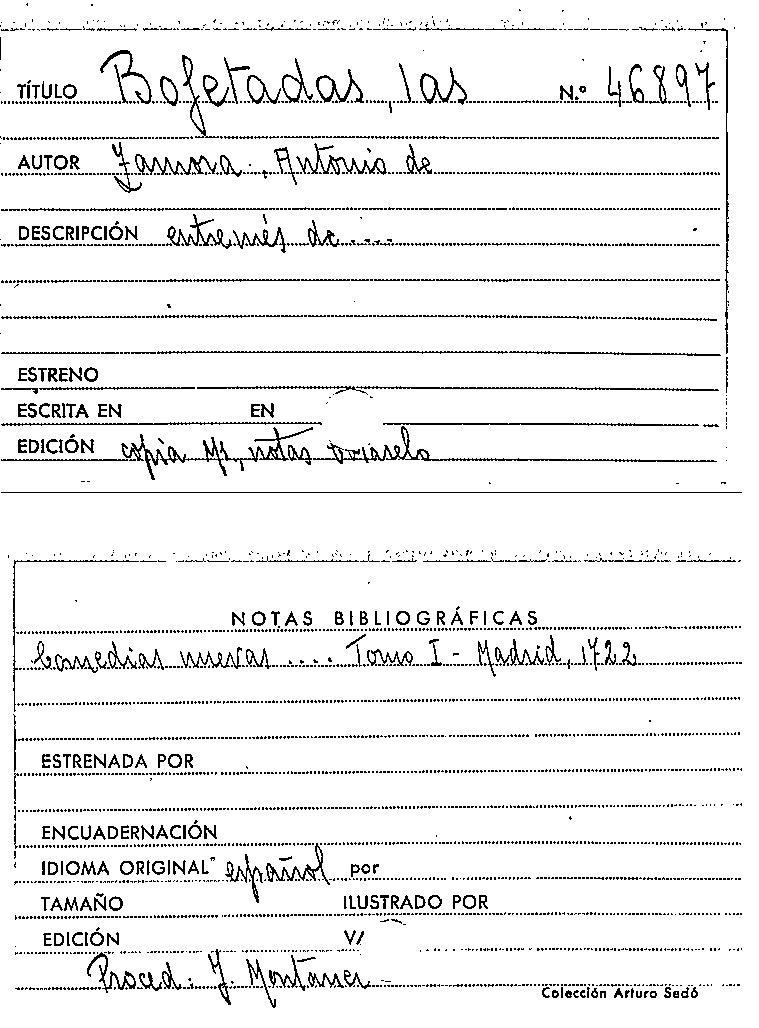 TÍTULO Bofetadas, las N.º 46897
AUTOR Zamora, Antonio de
DESCRIPCIÓN entremés de ....
ESTRENO
ESCRITA EN EN
EDICIÓN copia Ms, notas
NOTAS BIBLIOGRÁFICAS
Comedias nuevas .... Tomo I - Madrid, 1722
ESTRENADA POR
ENCUADERNACIÓN
IDIOMA ORIGINAL español por
TAMAÑO ILUSTRADO POR
EDICIÓN V/
Proced: J. Montaner
Colección Arturo Sedó